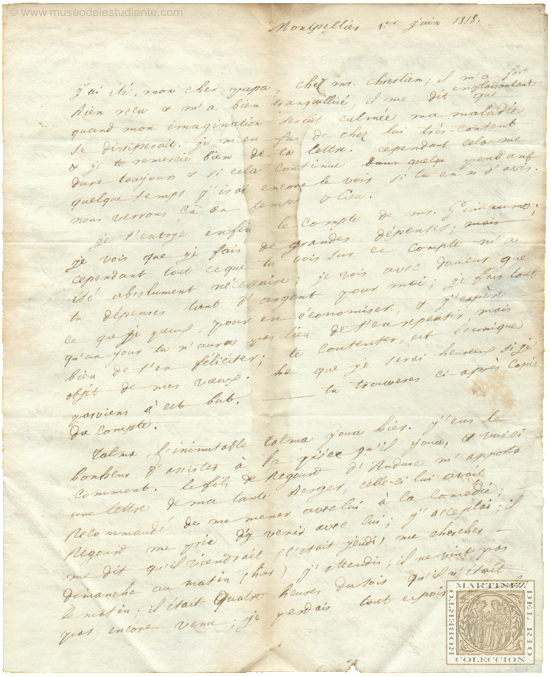 © www.museodelestudiante.com
Montpellier 1er juin 1818.
J'ai été, mon cher papa, chez mr chrestien; il m'a fort
bien reçu & m'a bien tranquillisé, il me dit que
quand mon imagination serait calmée ma maladie
se dissiperait. je m'en fus de chez lui très content
& je te remercie bien de ta lettre. cependant cela me
dure toujours & si cela continue pendant
quelque temps j'irai encore le voir si tu en es d'avis.
nous verrons ça en temps & lieu.
je t'envoye enfin le compte de mr.
je vois que je fais de grandes dépenses; mais
cependant tout ce que tu vois sur ce compte m'a
été absolument nécessaire; je vois avec douleur que
tu dépenses tant d'argent pour moi; je fais tout
ce que je peux pour en économiser, & j'espère
qu'un jour tu n'auras pas lieu de t'en repentir, mais
bien de t'en féliciter; te contenter, est l'unique
objet de mes vœux. he que je serai heureux si je
parviens à cet but. tu trouveras ci-après copie
du compte.
Talma, l'inimitable talma joua hier. j'eus le
bonheur d'assister à la pièce qu'il joua, & voici
comment. le fils de Regourd d'Anduze m'apporta
une lettre de ma tante Berger, celle-ci lui avait
recommandé de me mener avec lui à la comédie.
Regourd me pria d'y venir avec lui; j'acceptai; il
me dit qu'il viendrait (c'était jeudi) me chercher
demanche au matin (hier) j'attendis; il ne vint pas
le matin. il était quatre heures du soir qu'il n'était
pas encore venu; je perdais tout espoir
ROBERTO MARTINEZ DEL RIO
COLECCION